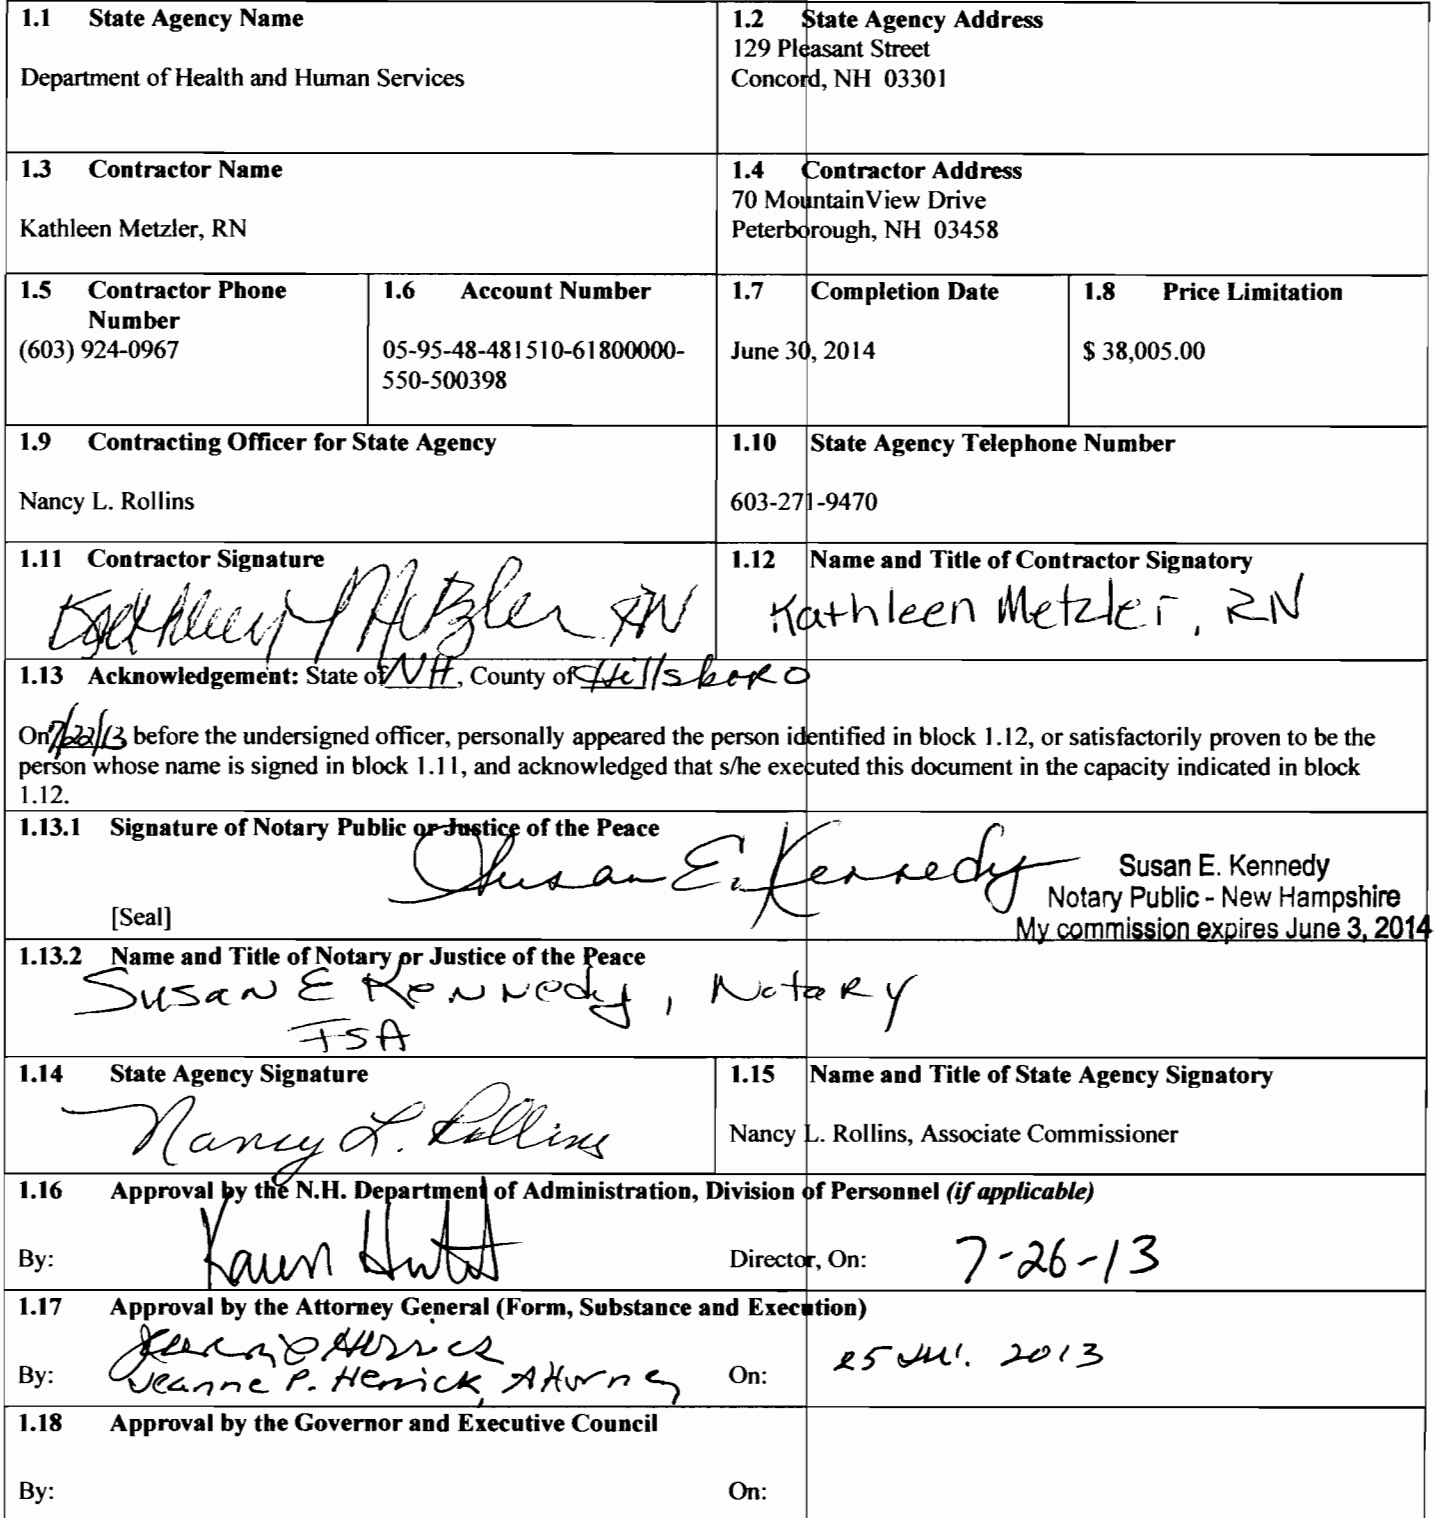 1.1 State Agency Name
Department of Health and Human Services
1.2 State Agency Address
129 Pleasant Street
Concord, NH 03301
1.3 Contractor Name
Kathleen Metzler, RN
1.4 Contractor Address
70 MountainView Drive
Peterborough, NH 03458
1.5 Contractor Phone
Number
(603) 924-0967
1.6 Account Number
05-95-48-481510-61800000-
550-500398
1.7 Completion Date
June 30, 2014
1.8 Price Limitation
$ 38,005.00
1.9 Contracting Officer for State Agency
Nancy L. Rollins
1.10 State Agency Telephone Number
603-271-9470
1.11 Contractor Signature
Kathleen Metzler RN
1.12 Name and Title of Contractor Signatory
Kathleen Metzler, RN
1.13 Acknowledgement: State of NH, County of Hillsboro
On 7/22/13 before the undersigned officer, personally appeared the person identified in block 1.12, or satisfactorily proven to be the
person whose name is signed in block 1.11, and acknowledged that s/he executed this document in the capacity indicated in block
1.12.
1.13.1 Signature of Notary Public or Justice of the Peace
Susan E. Kennedy
Susan E. Kennedy
Notary Public - New Hampshire
My commission expires June 3, 2014
[Seal]
1.13.2 Name and Title of Notary or Justice of the Peace
Susan E Kennedy, Notary
FSA
1.14 State Agency Signature
Nancy L. Rollins
1.15 Name and Title of State Agency Signatory
Nancy L. Rollins, Associate Commissioner
1.16 Approval by the N.H. Department of Administration, Division of Personnel (if applicable)
By: Karen
Director, On: 7-26-13
1.17 Approval by the Attorney General (Form, Substance and Execution)
Jeanne P Herrick
By: Jeanne P. Herrick, Attorney
On: 25 Jul. 2013
1.18 Approval by the Governor and Executive Council
By:
On: